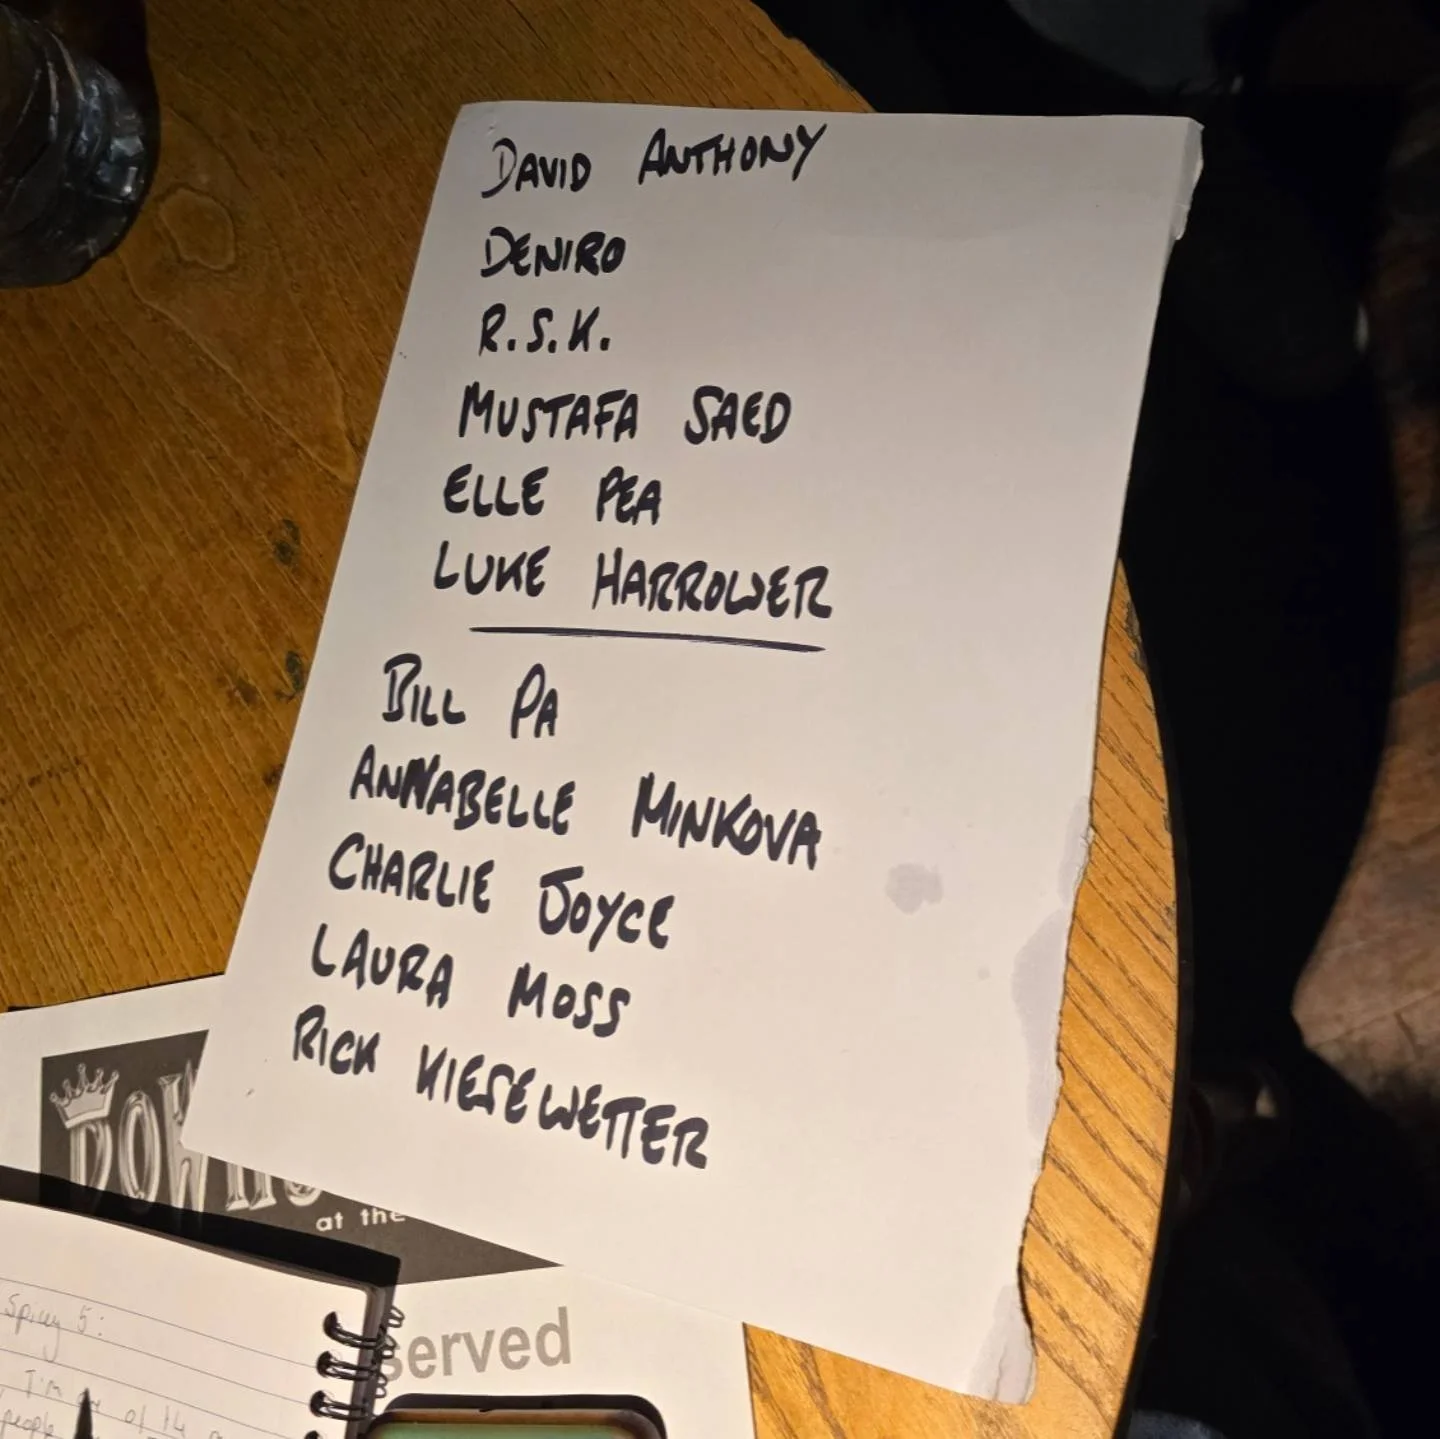 DAVID ANTHONY
DENIRO
R.S.K.
MUSTAFA SAED
ELLE PEA
LUKE HARROWER
BILL PA
ANNABELLE MINKOVA
CHARLIE JOYCE
LAURA MOSS
RICK KIESEWETTER
at the
served
Spicy 5:
I'm of
people